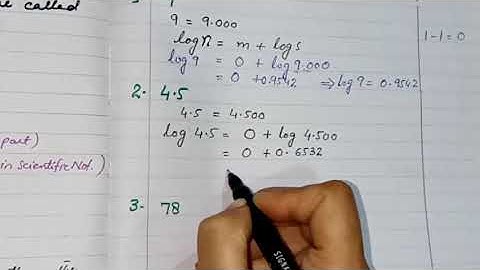 called
9 = 9.000
log n = m + log s
log 9 = 0 + log 9.000
= 0 + 0.9542 ⇒ log 9 = 0.9542
1 - 1 = 0
2. 4.5
4.5 = 4.500
log 4.5 = 0 + log 4.500
= 0 + 0.6532
part)
in Scientific Not.)
3. 78